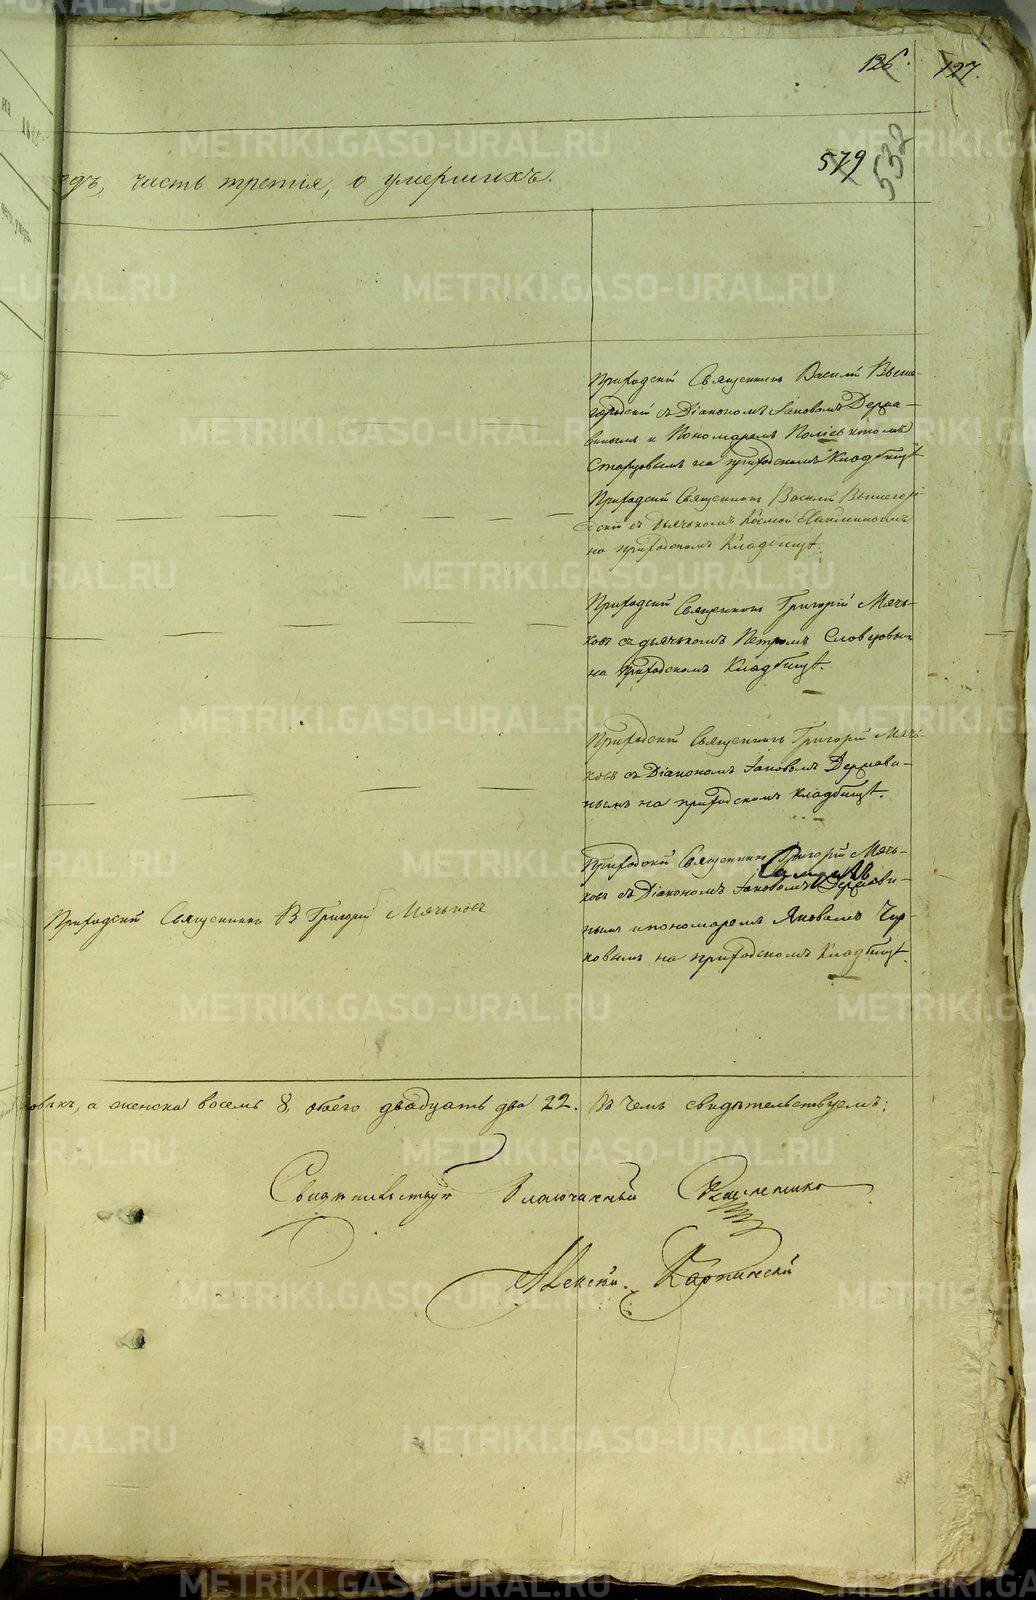 126. 127.
579 532
одъ, часть третія, о умершихъ.
Приходскій Священникъ Василій Выше-
городскій съ Діакономъ Іаковомъ Держа-
винымъ и Пономаремъ
Старцовымъ на приходскомъ кладбищѣ
Приходскій Священникъ Василій Вышегород-
скій съ Дьячькомъ Космой
на приходскомъ Кладбищѣ.
Приходскій Священникъ Григорій Мячь-
ковъ съ дьячькомъ Петромъ Словцовымъ
на приходскомъ Кладбищѣ.
Приходскій Священникъ Григорій Мячь-
ковъ съ Діакономъ Іаковомъ Держави-
нымъ на приходскомъ кладбищѣ.
Приходскій Священникъ Григорій Мячь-
ковъ съ Діакономъ Іаковомъ Держави-
нымъ и пономаремъ Яковомъ Чир-
ковымъ на приходскомъ Кладбищѣ.
Приходскій Священникъ Григорій Мячьковъ
ловѣкъ, а женска восемь 8, обоего двадцать два 22. Въ чемъ свидѣтельствуемъ:
Свидѣтельствую Благочинный
Алексій Карпинскій
METRIKI.GASO-URAL.RU